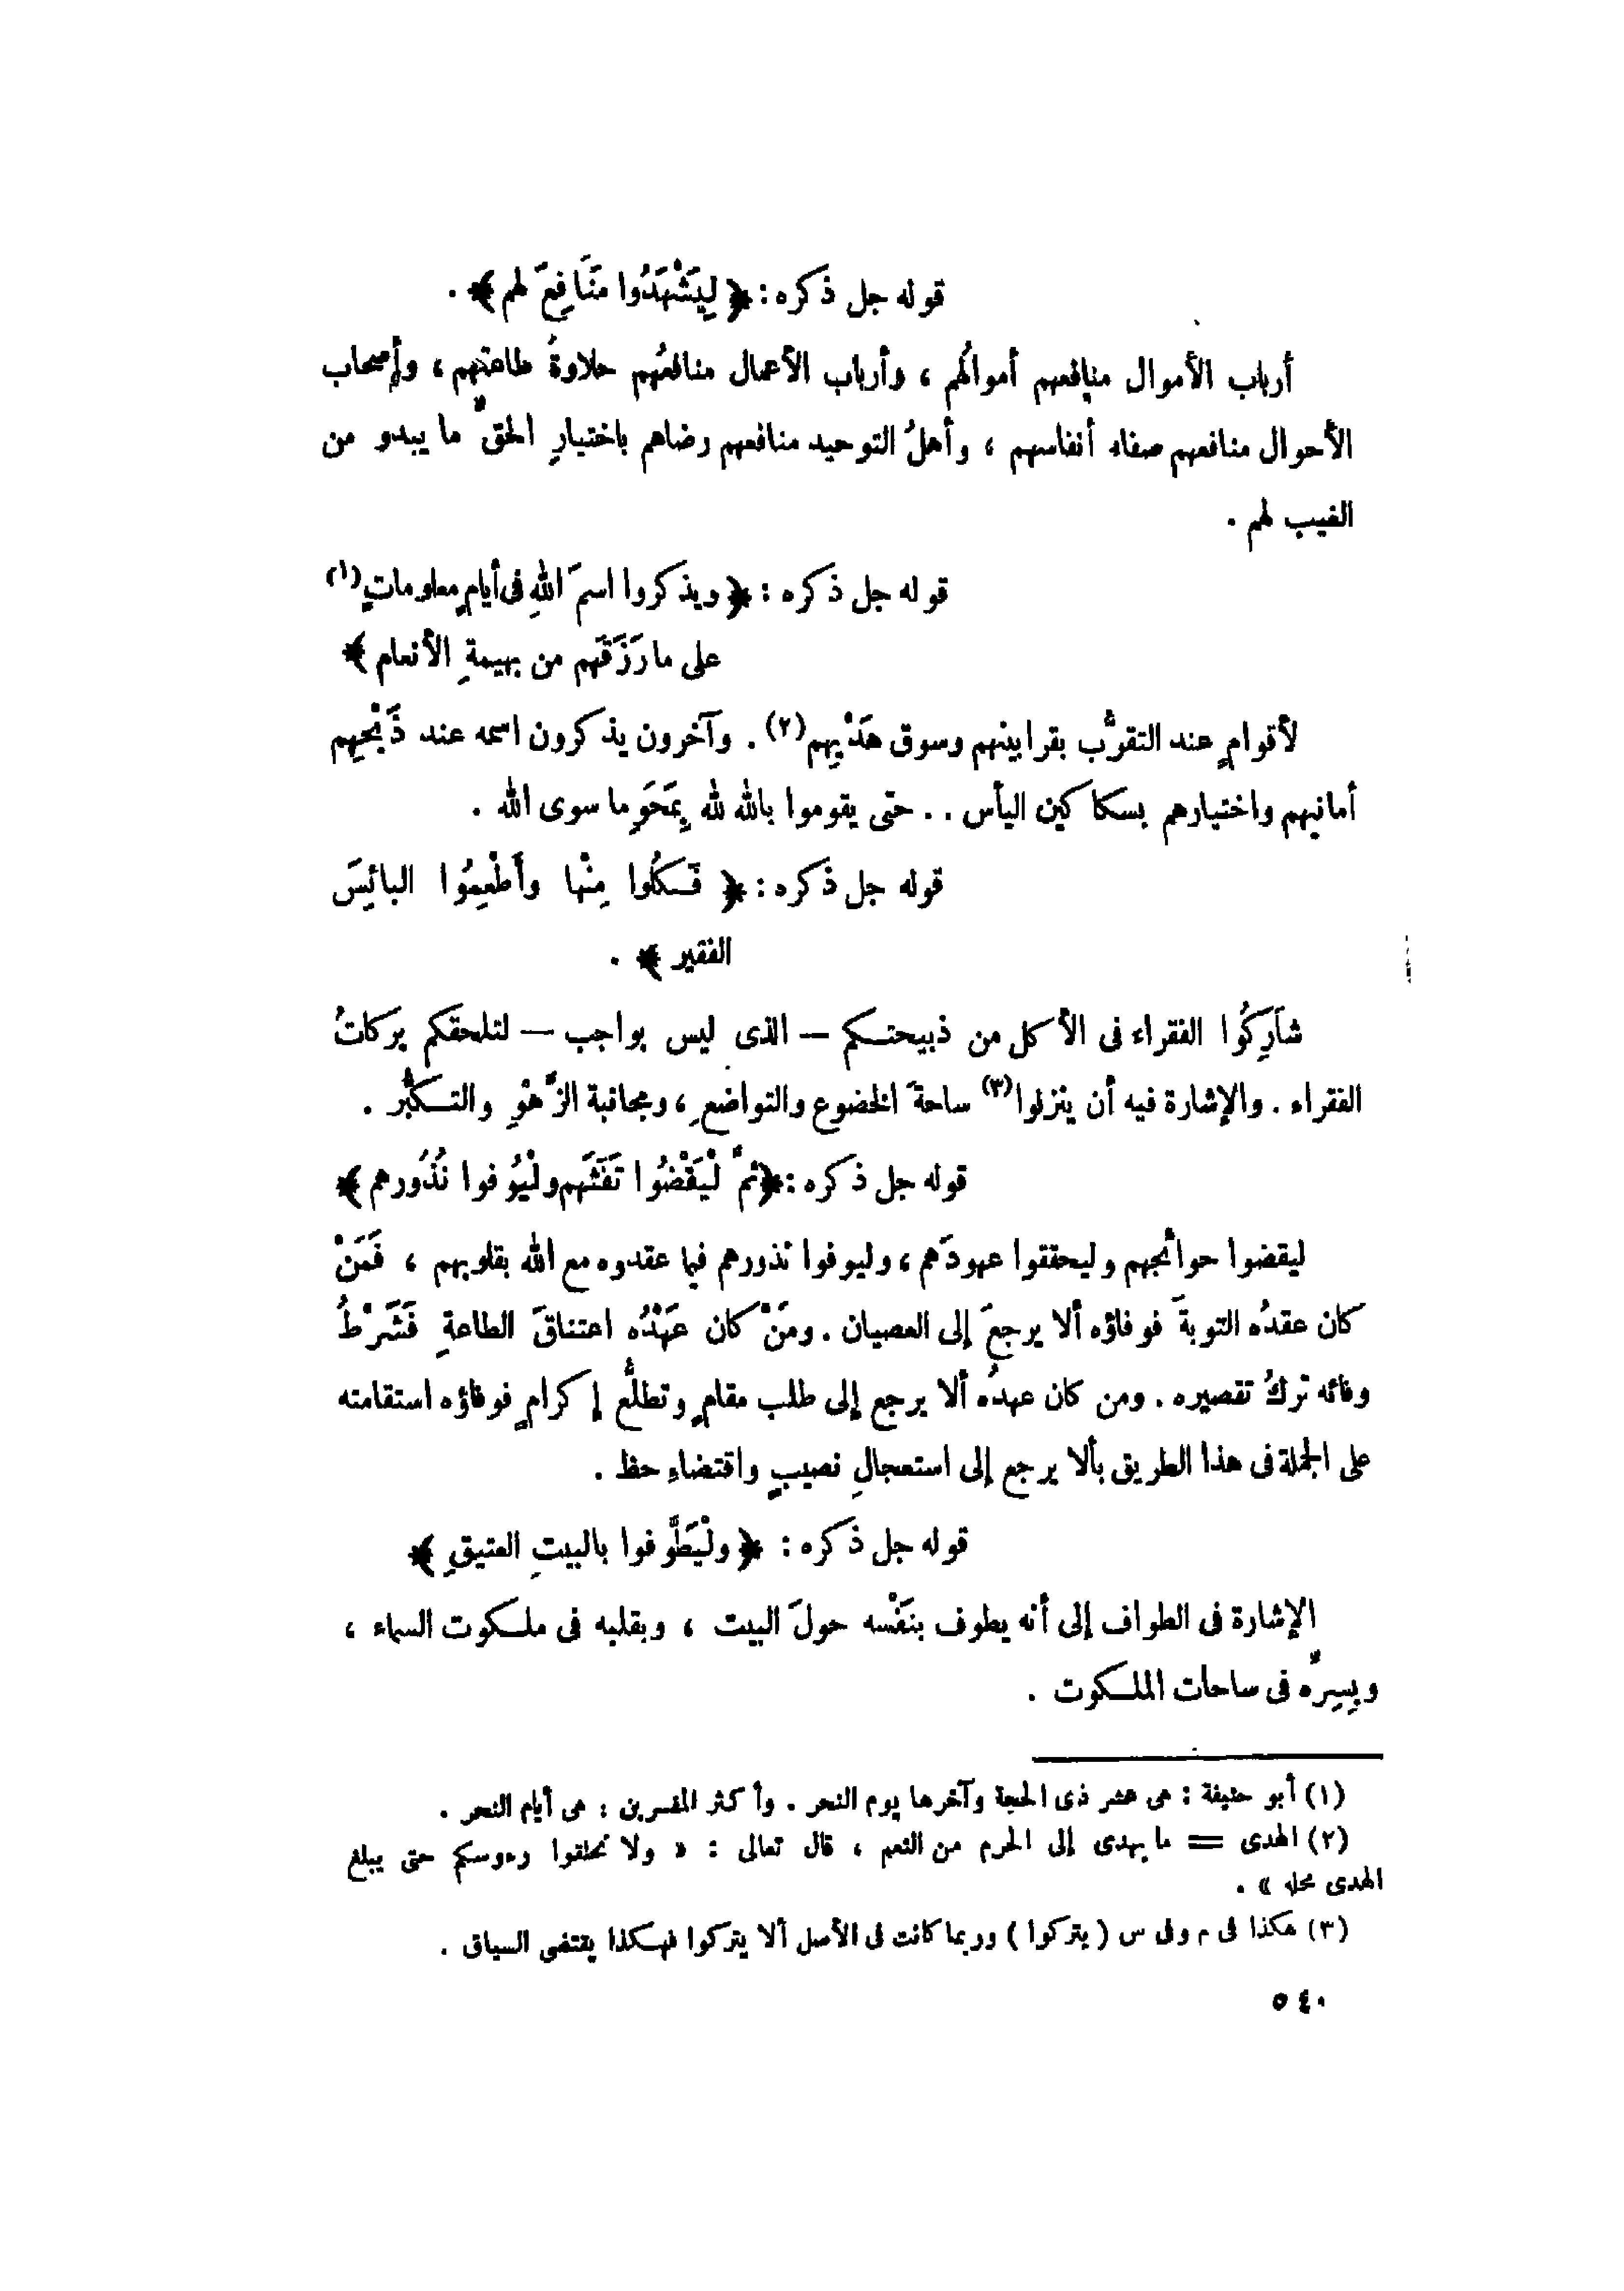 قوله جل ذكره : ﴿ لِيَشْهَدُوا مَنَافِعَ لهم ﴾ .
أرباب الأموال منافعهم أموالُهم ، وأرباب الأعمال منافعُهم حلاوةُ طاعتهم ، وأصحاب
الأحوال منافعهم صفاء أنفاسهم ، وأهلُ التوحيد منافعهم رضاهم باختيارِ الحقِّ ما يبدو من
الغيب لهم .
قوله جل ذكره : ﴿ ويذكروا اسمَ اللهِ فى أيامٍ معلوماتٍ (١)
على ما رَزَقَهم من بهيمةِ الأنعام ﴾
لأقوامٍ عند التقرُّب بقرابينهم وسوق هَدْيِهم (٢) . وآخرون يذكرون اسمه عند ذَبْحِهم
أمانيهم واختيارهم بسكاكين اليأس . . حتى يقوموا بالله لله بِمَحْوِ ما سوى الله .
قوله جل ذكره : ﴿ فَكُلُوا مِنْها وأَطْعِمُوا البائِسَ
الفقير ﴾ .
شَارِكُوا الفقراء فى الأكل من ذبيحتكم — الذى ليس بواجب — لتلحقكم بركاتُ
الفقراء . والإشارة فيه أن ينزلوا (٣) ساحةَ الخضوع والتواضعِ ، ومجانبة الزَّهْوِ والتكبُّر .
قوله جل ذكره : ﴿ ثمَّ لْيَقْضُوا تَفَثَهم ولْيُوفوا نُذُورهم ﴾
ليقضوا حوائجهم وليحققوا عهودَهم ، وليوفوا نذورهم فيما عقدوه مع الله بقلوبهم ، فَمَنْ
كان عقدُه التوبةَ فوفاؤه ألا يرجعَ إلى العصيان . ومَنْ كان عَهْدُه اعتناقَ الطاعةِ فَشَرْطُ
وفائه تركُ تقصيره . ومن كان عهدُه ألا يرجع إلى طلب مقامٍ وتطلُّع إكرامٍ فوفاؤه استقامته
على الجملة فى هذا الطريق بألا يرجع إلى استعجالِ نصيبٍ واقتضاءِ حظ .
قوله جل ذكره : ﴿ ولْيَطَّوَّفوا بالبيتِ العتيقِ ﴾
الإشارة فى الطواف إلى أنه يطوف بنَفْسه حولَ البيت ، وبقلبه فى ملكوت السماء ،
وبِسِرِّه فى ساحات الملكوت .
(١) أبو حنيفة : هى عشر ذى الحجة وآخرها يوم النحر . وأكثر المفسرين : هى أيام النحر .
(٢) الهدى = ما يهدى إلى الحرم من النعم ، قال تعالى : « ولا تحلقوا رءوسكم حتى يبلغ
الهدى محله » .
(٣) هكذا فى م وفى س ( يتركوا ) وربما كانت فى الأصل ألا يتركوا فهكذا يقتضى السياق .
٥٤٠